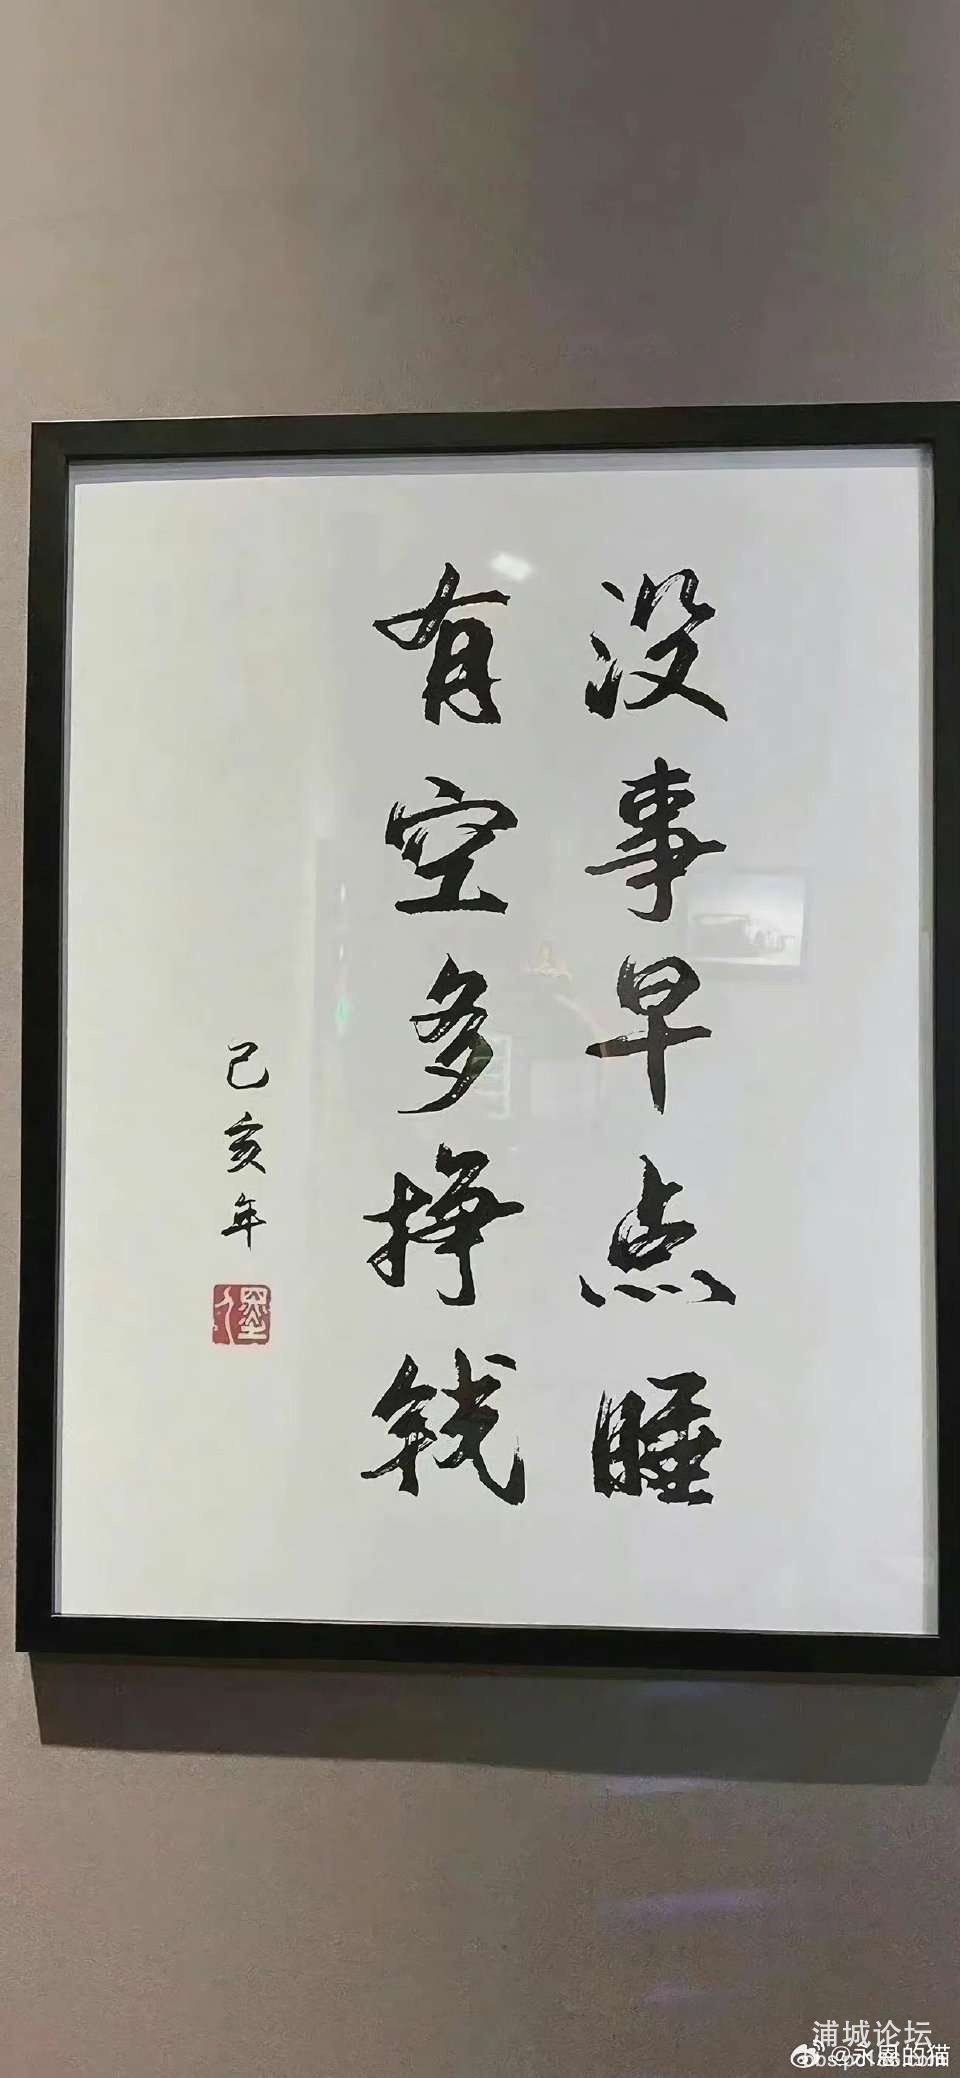 没事早点睡
有空多挣钱
己亥年
浦城论坛